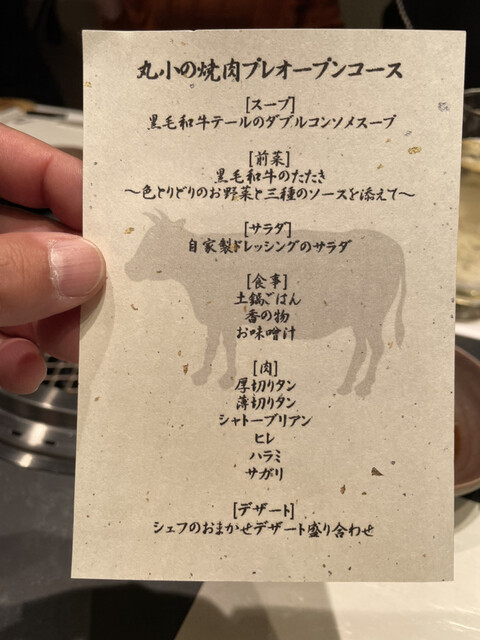 丸小の焼肉プレオープンコース
[スープ]
黒毛和牛テールのダブルコンソメスープ
[前菜]
黒毛和牛のたたき
～色とりどりのお野菜と三種のソースを添えて～
[サラダ]
自家製ドレッシングのサラダ
[食事]
土鍋ごはん
香の物
お味噌汁
[肉]
厚切りタン
薄切りタン
シャトーブリアン
ヒレ
ハラミ
サガリ
[デザート]
シェフのおまかせデザート盛り合わせ